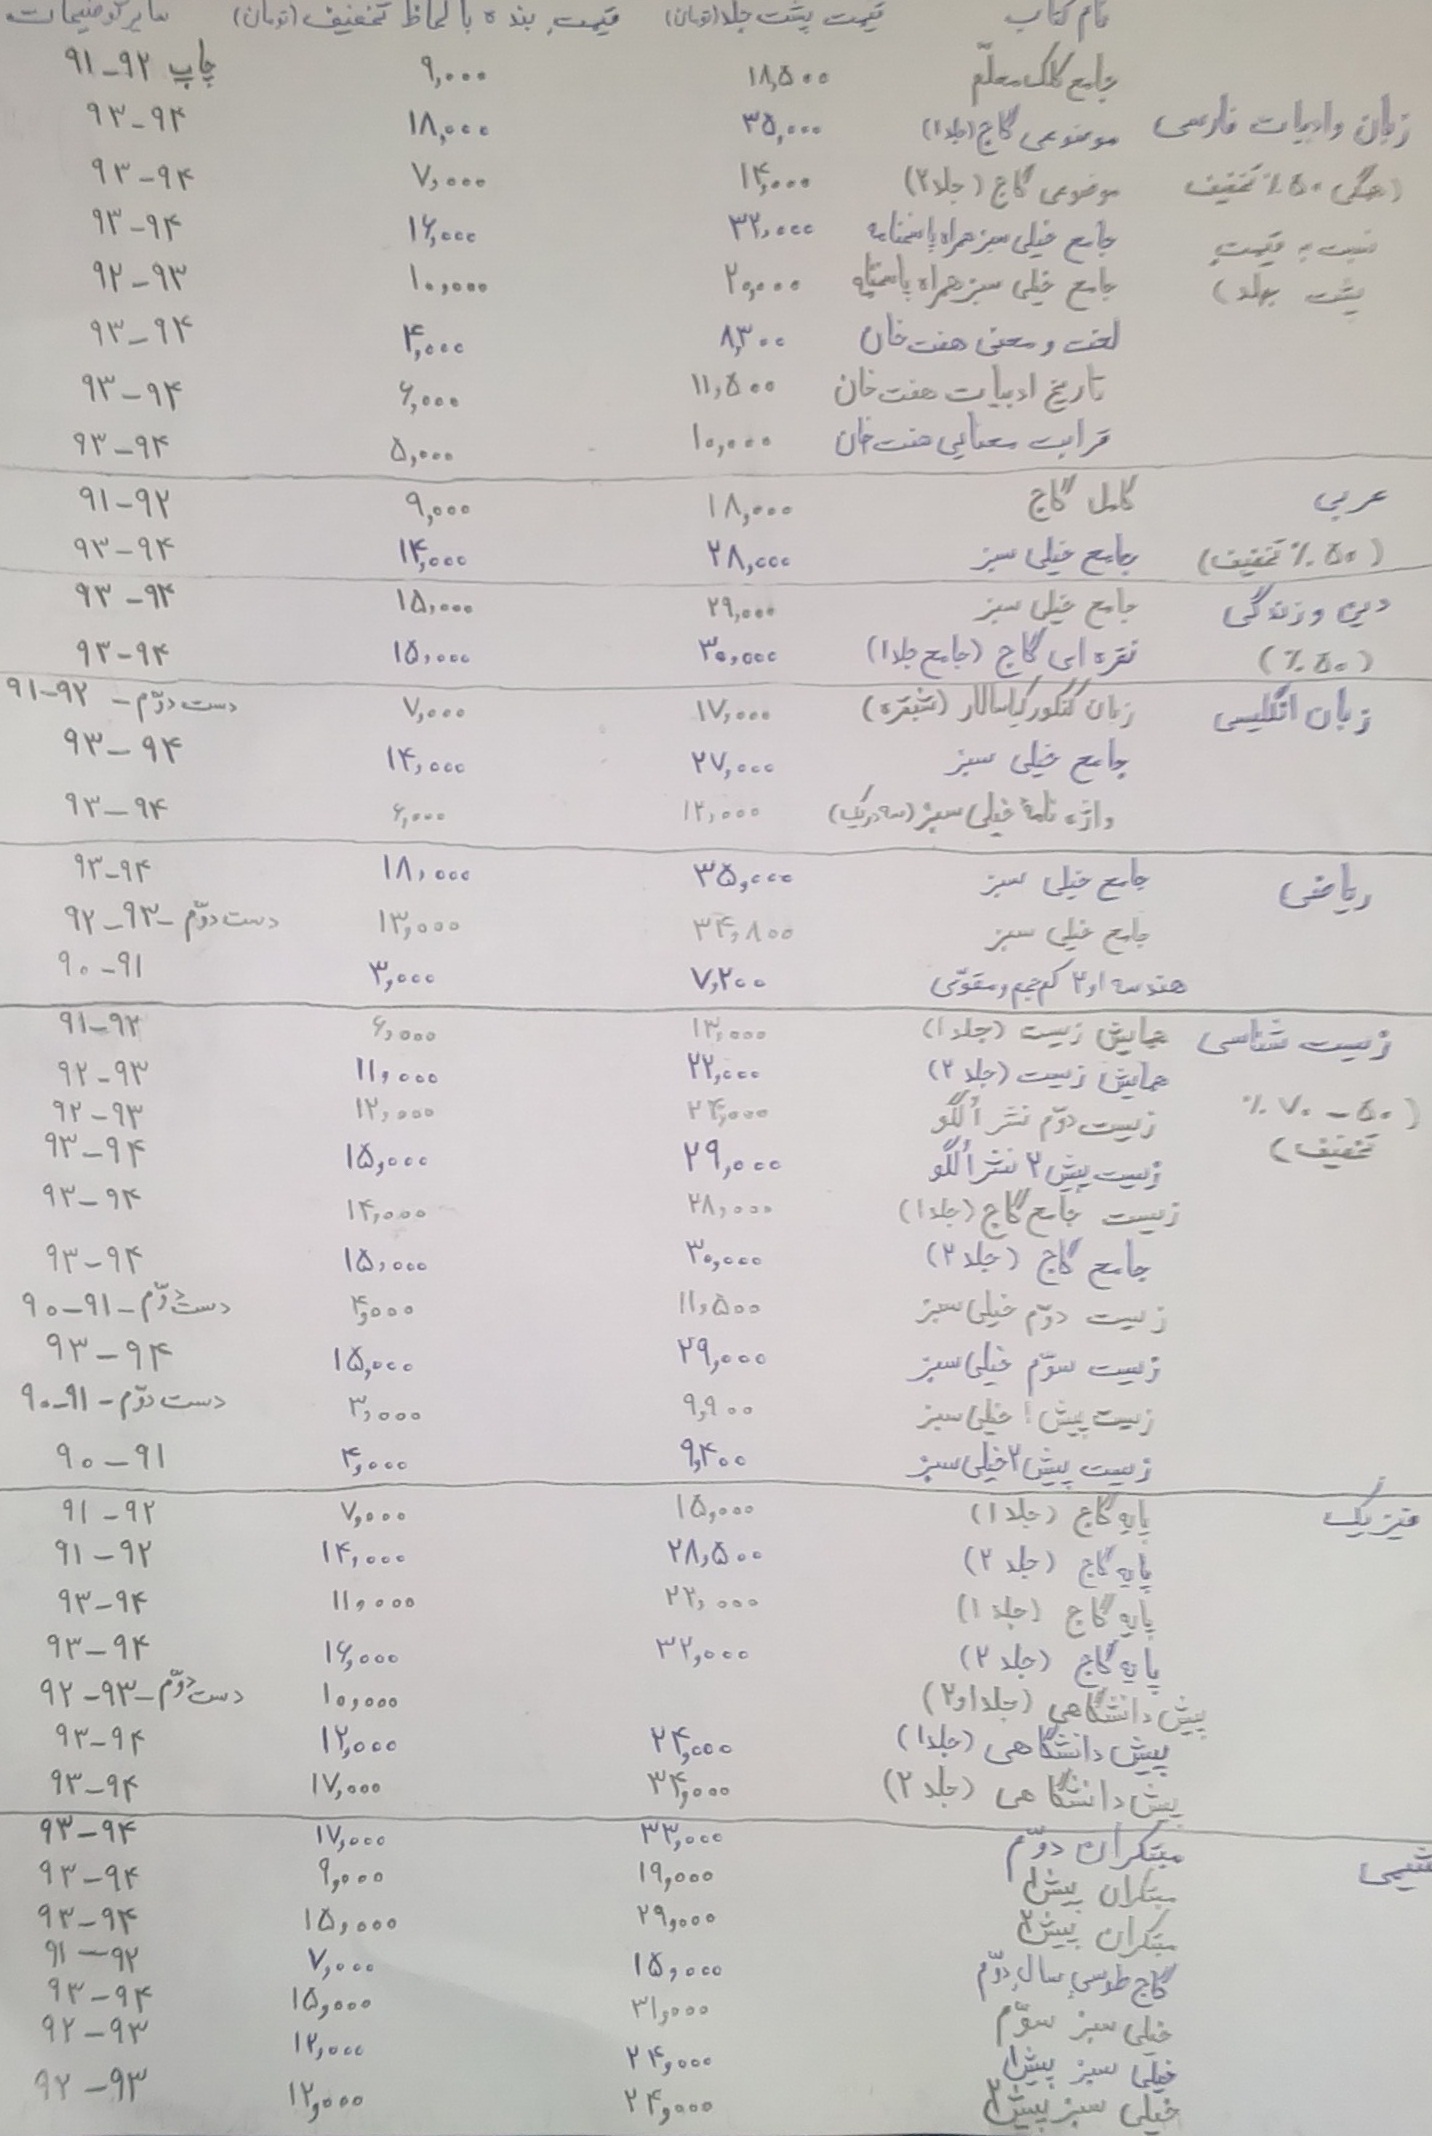 نام کتاب قیمت پشت جلد (تومان) قیمت بنده با لحاظ تخفیف (تومان) سایر توضیحات
جامع کلک معلّم ۱۸,۵۰۰ ۹,۰۰۰ چاپ ۹۲-۹۱
زبان و ادبیات فارسی موضوعی گاج (جلد۱) ۳۵,۰۰۰ ۱۸,۰۰۰ ۹۴-۹۳
(همگی ۵۰٪ تخفیف موضوعی گاج (جلد۲) ۱۴,۰۰۰ ۷,۰۰۰ ۹۴-۹۳
نسبت به قیمت جامع خیلی سبز همراه پاسخنامه ۳۲,۰۰۰ ۱۶,۰۰۰ ۹۴-۹۳
پشت جلد) جامع خیلی سبز همراه پاسخنامه ۲۰,۰۰۰ ۱۰,۰۰۰ ۹۳-۹۲
لغت و معنی هفت خان ۸,۳۰۰ ۴,۰۰۰ ۹۴-۹۳
تاریخ ادبیات هفت خان ۱۱,۵۰۰ ۶,۰۰۰ ۹۴-۹۳
قرابت معنایی هفت خان ۱۰,۰۰۰ ۵,۰۰۰ ۹۴-۹۳
عربی کامل گاج ۱۸,۰۰۰ ۹,۰۰۰ ۹۲-۹۱
(۵۰٪ تخفیف) جامع خیلی سبز ۲۸,۰۰۰ ۱۴,۰۰۰ ۹۴-۹۳
دین و زندگی جامع خیلی سبز ۲۹,۰۰۰ ۱۵,۰۰۰ ۹۴-۹۳
(۵۰٪) نقره ای گاج (جامع جلد۱) ۳۰,۰۰۰ ۱۵,۰۰۰ ۹۴-۹۳
زبان انگلیسی زبان کنکور کیاسالار (شبقره) ۱۷,۰۰۰ ۷,۰۰۰ دست دوّم - ۹۲-۹۱
جامع خیلی سبز ۲۷,۰۰۰ ۱۴,۰۰۰ ۹۴-۹۳
واژه نامهٔ خیلی سبز (سه در یک) ۱۲,۰۰۰ ۶,۰۰۰ ۹۴-۹۳
ریاضی جامع خیلی سبز ۳۵,۰۰۰ ۱۸,۰۰۰ ۹۴-۹۳
جامع خیلی سبز ۳۴,۸۰۰ ۱۳,۰۰۰ دست دوّم - ۹۳-۹۲
هندسه ۱و۲ کم حجم و مقوّی ۷,۲۰۰ ۳,۰۰۰ ۹۱-۹۰
زیست شناسی همایش زیست (جلد۱) ۱۳,۰۰۰ ۶,۰۰۰ ۹۲-۹۱
همایش زیست (جلد ۲) ۲۲,۰۰۰ ۱۱,۰۰۰ ۹۳-۹۲
(۵۰-۷۰٪ زیست دوّم نشر اُلگو ۲۴,۰۰۰ ۱۲,۰۰۰ ۹۳-۹۲
تخفیف) زیست پیش ۲ نشر اُلگو ۲۹,۰۰۰ ۱۵,۰۰۰ ۹۴-۹۳
زیست جامع گاج (جلد۱) ۲۸,۰۰۰ ۱۴,۰۰۰ ۹۴-۹۳
جامع گاج (جلد ۲) ۳۰,۰۰۰ ۱۵,۰۰۰ ۹۴-۹۳
زیست دوّم خیلی سبز ۱۱,۵۰۰ ۴,۰۰۰ دست دوّم - ۹۱-۹۰
زیست سوّم خیلی سبز ۲۹,۰۰۰ ۱۵,۰۰۰ ۹۴-۹۳
زیست پیش ۱ خیلی سبز ۹,۹۰۰ ۳,۰۰۰ دست دوّم - ۹۱-۹۰
زیست پیش ۲ خیلی سبز ۹,۴۰۰ ۴,۰۰۰ ۹۱-۹۰
فیزیک پایه گاج (جلد ۱) ۱۵,۰۰۰ ۷,۰۰۰ ۹۲-۹۱
پایه گاج (جلد ۲) ۲۸,۵۰۰ ۱۴,۰۰۰ ۹۲-۹۱
پایه گاج (جلد ۱) ۲۲,۰۰۰ ۱۱,۰۰۰ ۹۴-۹۳
پایه گاج (جلد ۲) ۳۲,۰۰۰ ۱۶,۰۰۰ ۹۴-۹۳
پیش دانشگاهی (جلد۱و۲) ۱۰,۰۰۰ دست دوّم - ۹۳-۹۲
پیش دانشگاهی (جلد۱) ۲۴,۰۰۰ ۱۲,۰۰۰ ۹۴-۹۳
پیش دانشگاهی (جلد ۲) ۳۴,۰۰۰ ۱۷,۰۰۰ ۹۴-۹۳
شیمی مبتکران دوّم ۳۳,۰۰۰ ۱۷,۰۰۰ ۹۴-۹۳
مبتکران پیش۱ ۱۹,۰۰۰ ۹,۰۰۰ ۹۴-۹۳
مبتکران پیش۲ ۲۹,۰۰۰ ۱۵,۰۰۰ ۹۴-۹۳
گاج طوسی سال دوّم ۱۵,۰۰۰ ۷,۰۰۰ ۹۲-۹۱
خیلی سبز سوّم ۳۱,۰۰۰ ۱۵,۰۰۰ ۹۴-۹۳
خیلی سبز پیش۱ ۲۴,۰۰۰ ۱۲,۰۰۰ ۹۳-۹۲
خیلی سبز پیش۲ ۲۴,۰۰۰ ۱۲,۰۰۰ ۹۳-۹۲